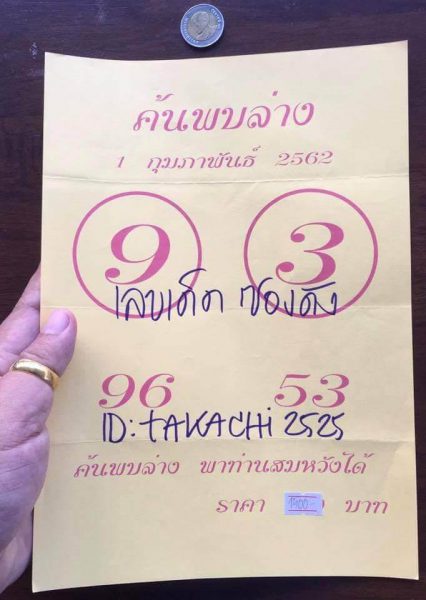 ค้นพบล่าง
1 กุมภาพันธ์ 2562
9 3
เลขเด็ด ซองดัง
96 53
ID: tAKACHi 2525
ค้นพบล่าง พาท่านสมหวังได้
ราคา บาท